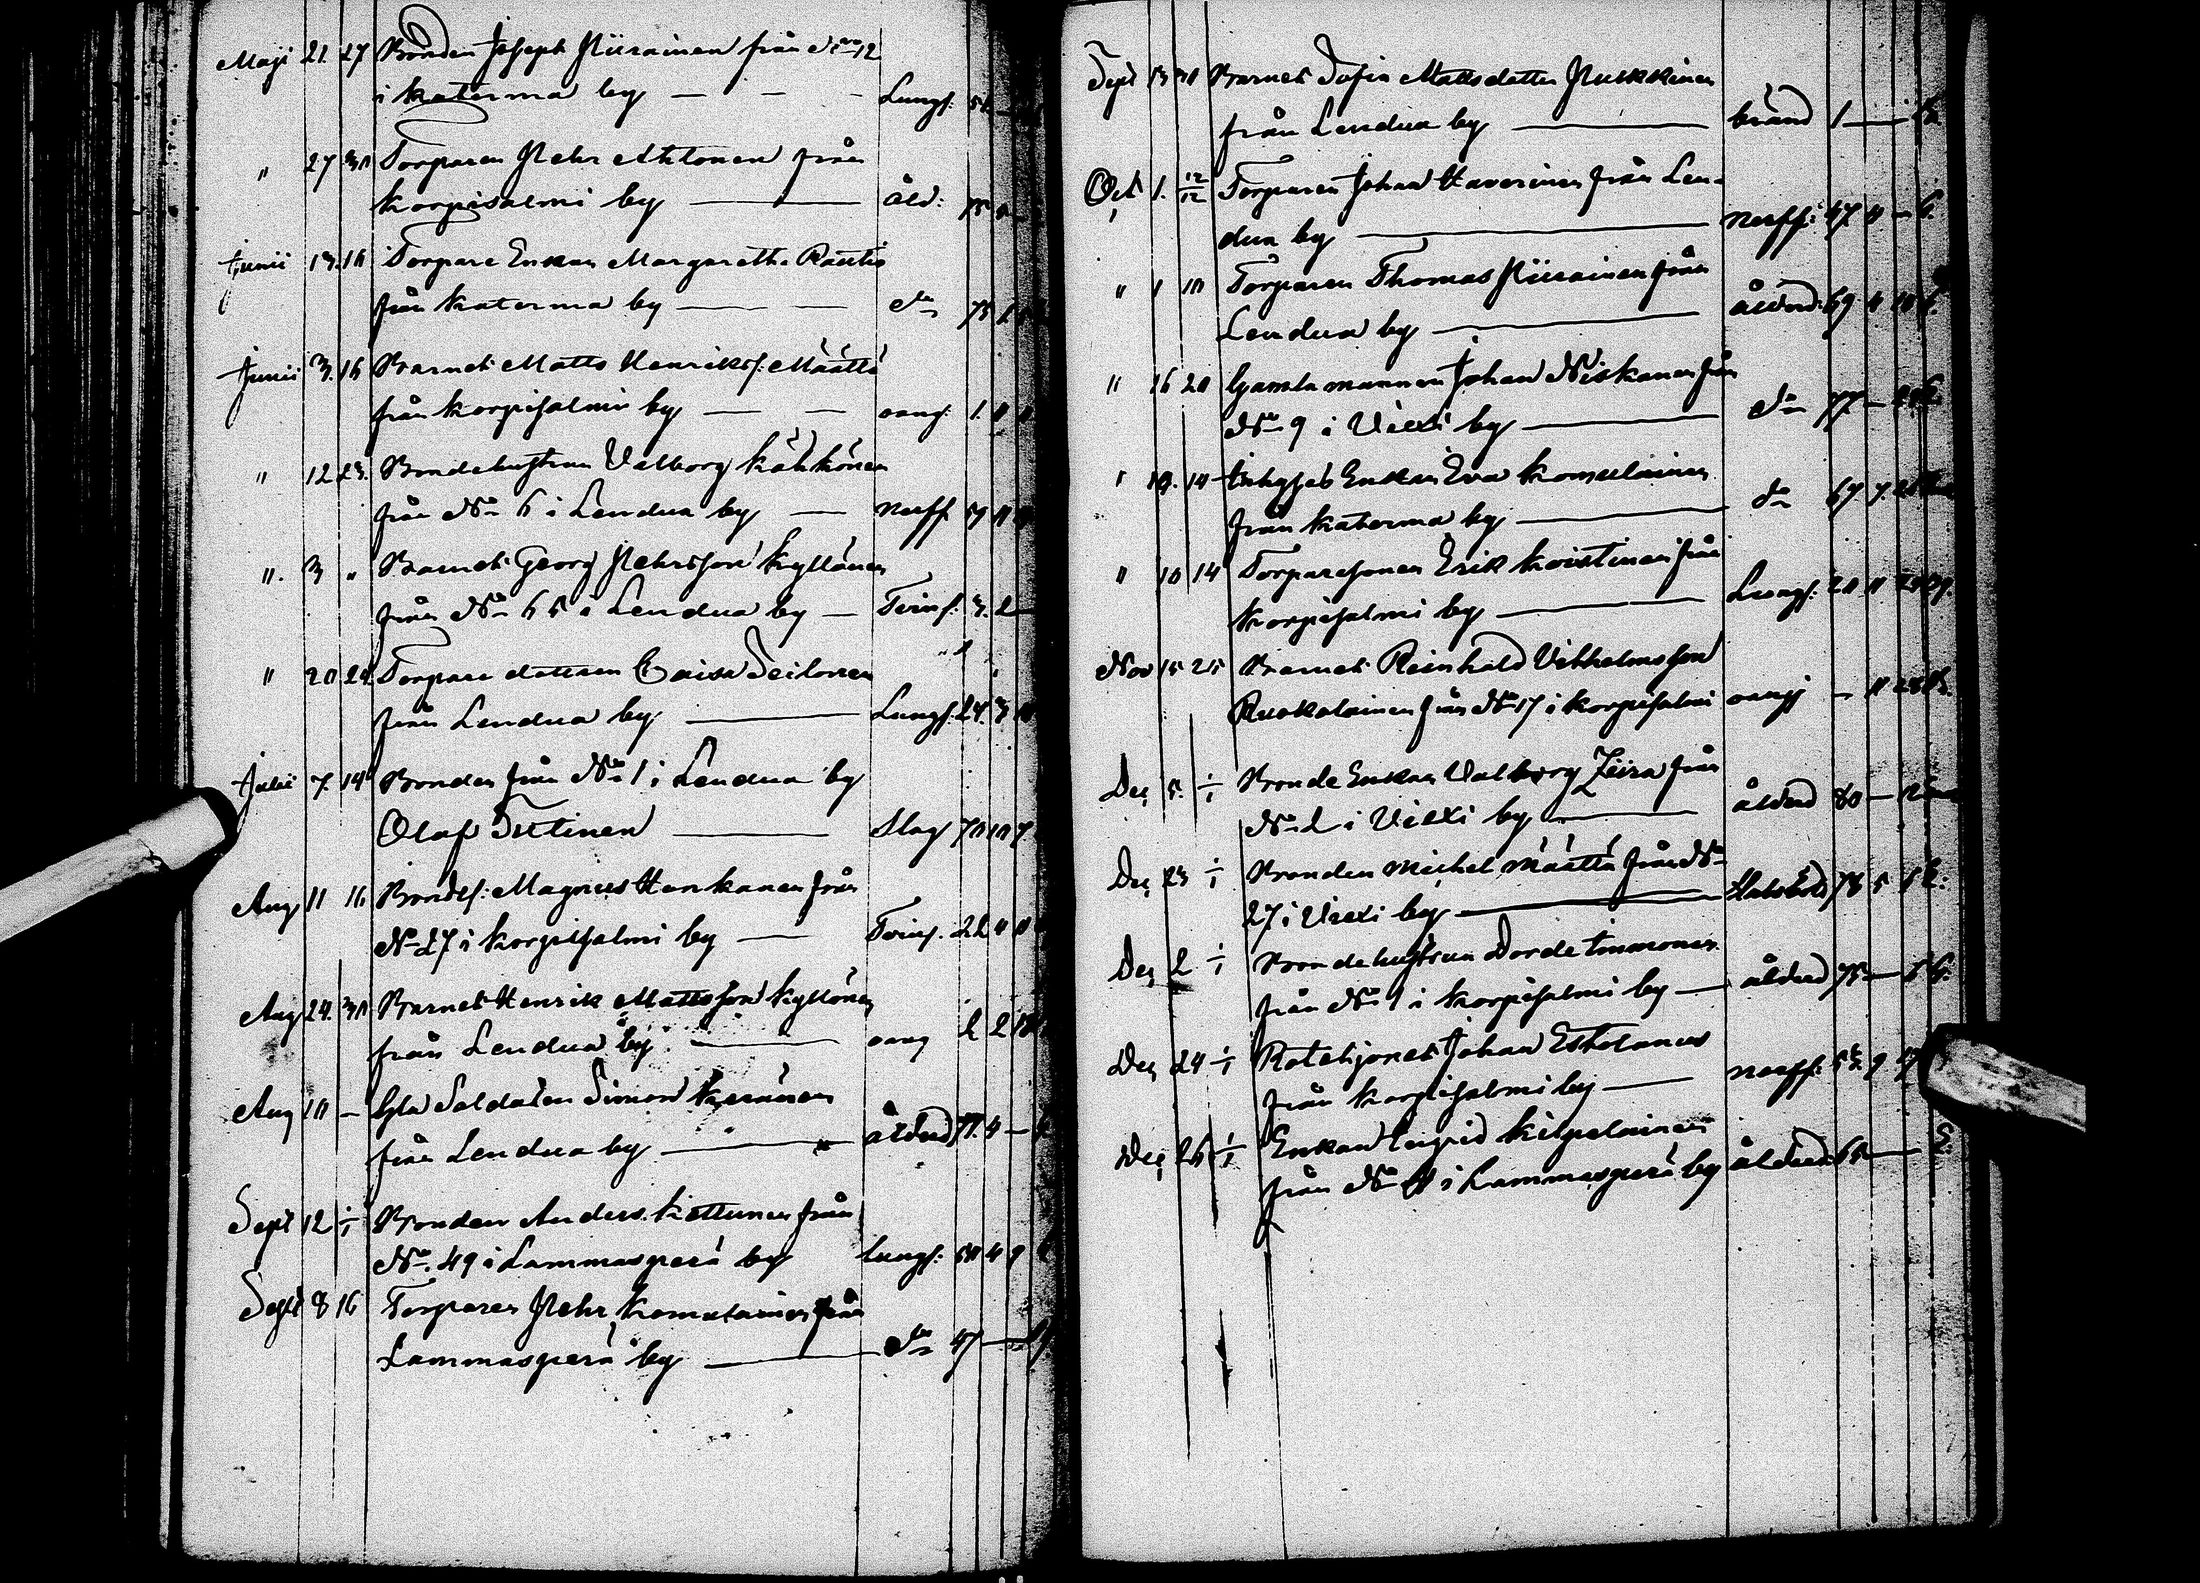 Maji 21. 27 Bonden Joseph Piirainen från No 12
i Katerma by — — — Lungs:
" 27 30 Torparen Pehr Ahtonen från
Korpisalmi by — åld:
Junii 13. 16 Torpare Enkan Margaretha Rautio
från Katerma by — — do 73
Junii 3. 16 Barnet Matts Henrikss: Määttä
från Korpisalmi by — — oang: 1.
" 12 23. Bondehustrun Valborg Kähkönen
från No 6 i Lendua by — Nerff
". 3 " Barnet Georg Pehrsson Kyllönen
från No 65 i Lendua by — Tvins: 3. 2
" 20 24 Torpare dottren Caisa
från Lendua by — Lungs. 24. 3
Julii 7. 14 Bonden från No 1 i Lendua by
Olaf Tutinen — Slag 70 10 7.
Aug 11 16 Bondes: Magnus Honkanen från
No 27 i Korpisalmi by — Tvins. 22
Aug 24. 30 Barnet Henrik Mattsson Kyllönen
från Lendua by — oang 2 2
Aug 10 — Gla Soldaten Simon Keränen
från Lendua by — ålderd 77.
Sept 12 1/1 Bonden Anders Kettunen från
No. 49 i Lammasperä by Lungs: 50 4 9
Sept 8 16 Torparen Pehr Komulainen från
Lammasperä by — do 47 —
Sept 13 30 Barnet Sofia Mattsdotter Pukkinen
från Lendua by — bränd 1 —
Oct 1. 12/12 Torparen Johan Kaverinen från Len-
dua by — Nerff: 47. " — 6.
" 1 10 Torparen Thomas Piirainen från
Lendua by — ålderd: 69
" 16 20 Gamla mannen Johan Niskanen från
No 9 i Viexi by — do 77. —
" 10. 14 Inhyses Enkan Eva Komulainen
från Katerma by — do 67 7.
" 10 14 Torparesonen Erik Koistinen från
Korpisalmi by — Lungs: 20
Nov 15 25 Barnet Reinhold Vilhelmsson
Ruokolainen från No 17 i Korpisalmi oangj —
Dec 5. 1/1 Bonde Enkan Valborg Zeira från
No 2 i Viexi by — ålderd 80 —
Dec 23 1/1 Bonden Michel Määttä från No
27 i Viexi by — Halsböld 78 5
Dec 2 1/1 Bondehustrun Dorde Timmonen
från No 1 i Korpisalmi by — ålderd 75 —
Dec 24 1/1 Rotehjonet Johan Eskolanus
från Korpisalmi by — Nerff:
Dec 26 1/1 Enkan Ingrid Kilpelainen
från No i Lammasperä by ålderd —